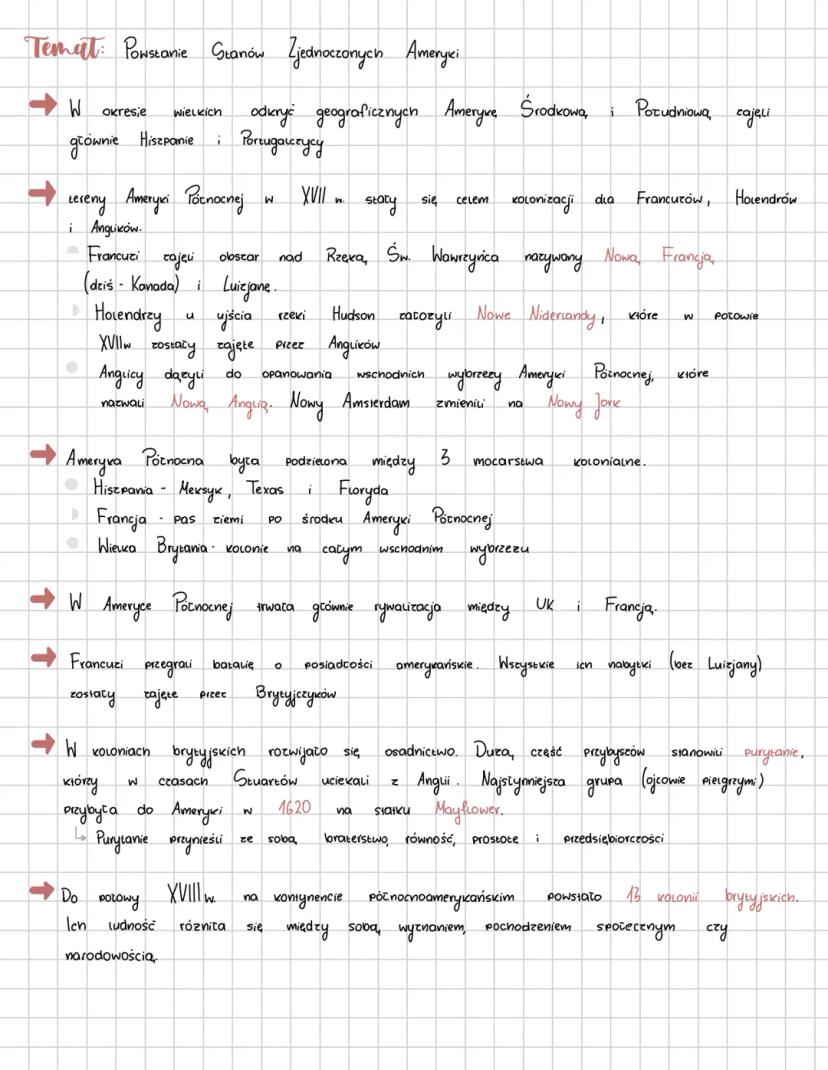 Temat: Powstanie Stanów Zjednoczonych Ameryki
W okresie wielkich odkryć geograficznych Amerykę Środkową i Południową zajęli
głównie Hiszpanie i Portugalczycy
tereny Ameryki Północnej w XVII w. stały się celem kolonizacji dla Francuzów, Holendrów
i Anglików.
Francuzi zajęli obszar nad Rzeką Św. Wawrzyńca nazywany Nową Francją
(dziś - Kanada) i Luizjanę.
Holendrzy u ujścia rzeki Hudson założyli Nowe Niderlandy, które w połowie
XVIIw zostały zajęte przez Anglików
Anglicy dążyli do opanowania wschodnich wybrzeży Ameryki Północnej, które
nazwali Nową Anglią. Nowy Amsterdam zmienili na Nowy Jork
Ameryka Północna była podzielona między 3 mocarstwa kolonialne.
Hiszpania - Meksyk, Texas i Floryda
Francja - pas ziemi po środku Ameryki Północnej
Wielka Brytania - kolonie na całym wschodnim wybrzeżu
W Ameryce Północnej trwała głównie rywalizacja między UK i Francją.
Francuzi przegrali batalię o posiadłości amerykańskie. Wszystkie ich nabytki (bez Luizjany)
zostały zajęte przez Brytyjczyków
W koloniach brytyjskich rozwijało się osadnictwo. Dużą część przybyszów stanowili purytanie,
którzy w czasach Stuartów uciekali z Anglii. Najsłynniejsza grupa (ojcowie pielgrzymi)
przybyła do Ameryki w 1620 na statku Mayflower.
Purytanie przynieśli ze sobą braterstwo, równość, prostotę i przedsiębiorczości
Do połowy XVIII w. na kontynencie północnoamerykańskim powstało 13 kolonii brytyjskich.
Ich ludność różniła się między sobą wyznaniem, pochodzeniem społecznym czy
narodowością.